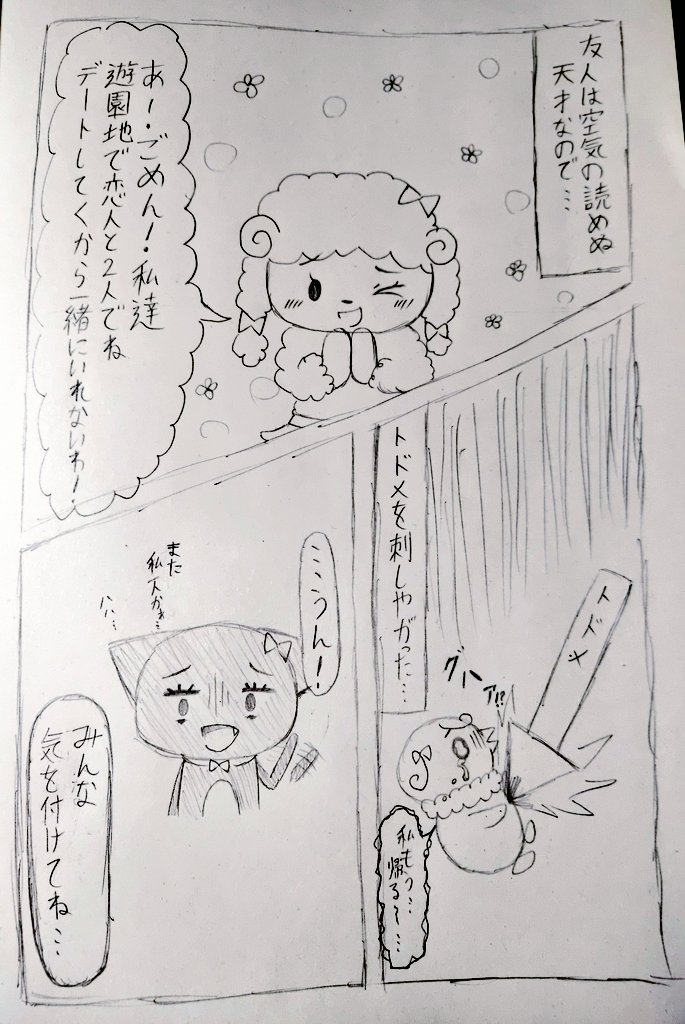 友人は空気の読めぬ
天才なので…
あー・ごめん！私達
遊園地で恋人と2人でね
デートしてくから一緒にいれないわ！
トドメを刺しやがった…
トドメ
グハ
ア!?
私もう…
帰る〜…
…うん！
また
ハハ…
みんな
気を付けてね…